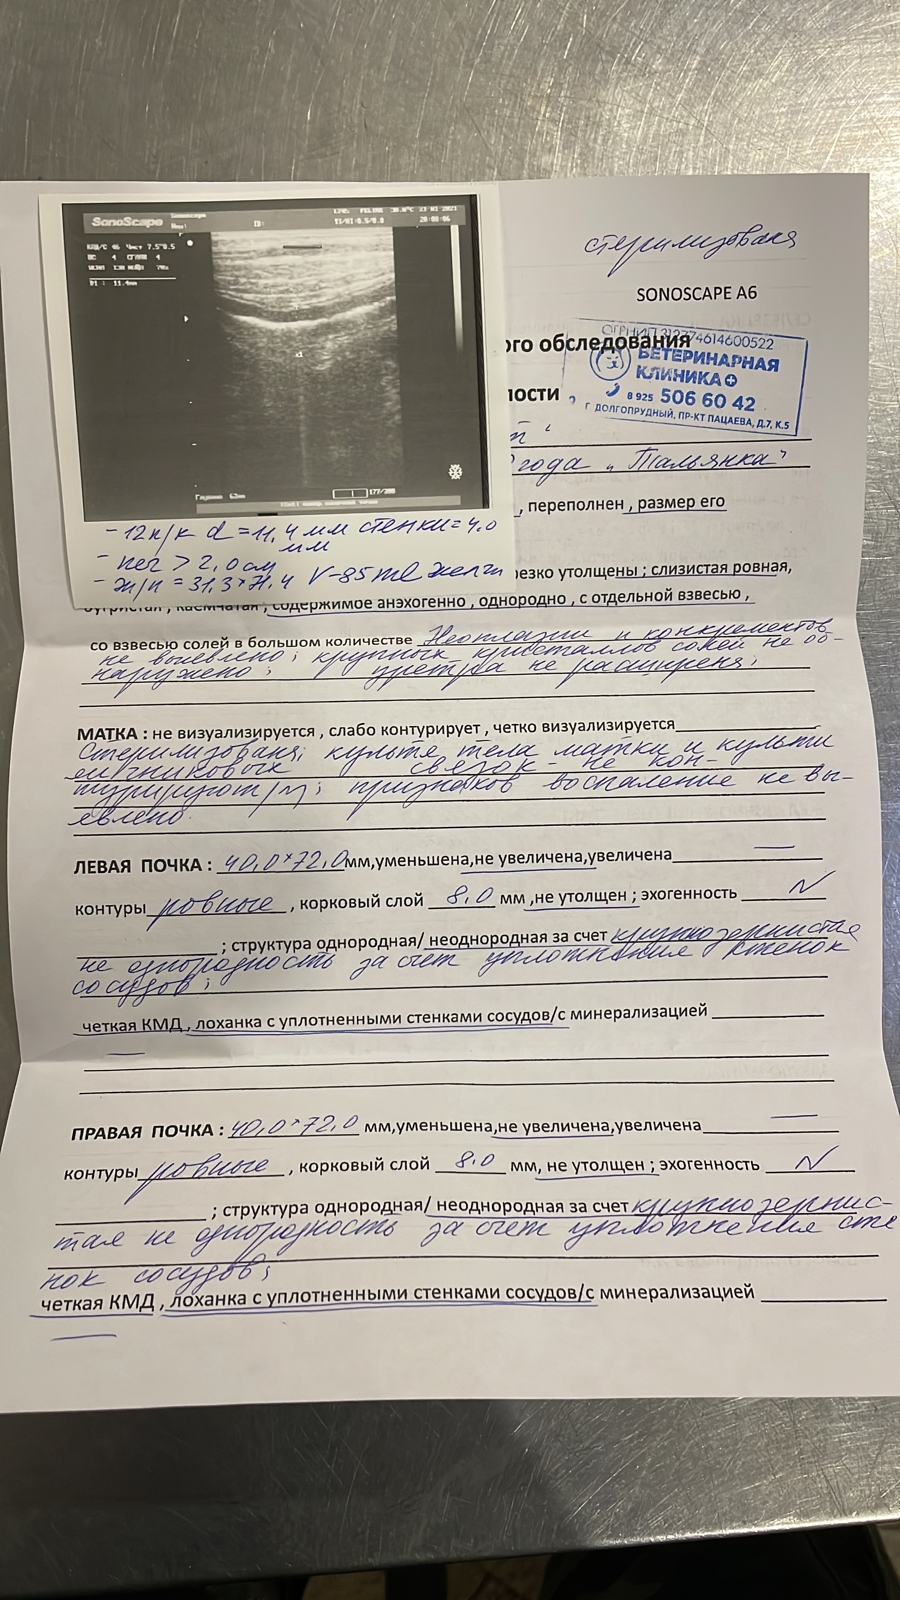 стерилизованя
SONOSCAPE A6
SonoScape
20:09:06
Чист 7.5
D1: 11.4мм
Глубина 62мм
ого обследования
ОГРНИП 312774614600522
ВЕТЕРИНАРНАЯ
КЛИНИКА
8 925 506 60 42
Г. ДОЛГОПРУДНЫЙ, ПР-КТ ПАЦАЕВА, Д.7, К.5
ности
года „Тальянка"
, переполнен, размер его
- 12п/к d = 11,4 мм стенки = 4.0
мм
- неч > 2,0 см
- ж/п = 31,3×71,4 V-85 ml желчи
резко утолщены ; слизистая ровная,
бугристая, каемчатая, содержимое анэхогенно, однородно, с отдельной взвесью,
со взвесью солей в большом количестве Неоплазии и конкрементов
не выевлено; крупных кристаллов солей не об-
наружено; уретра не расширеня;
МАТКА : не визуализируется, слабо контурирует, четко визуализируется
Стерилизованя; культя тела матки и культи
яичниковых связок - не кон-
турируют(ся); признаков воспаление не вы-
явлено.
ЛЕВАЯ ПОЧКА : 40,0×72,0мм,уменьшена,не увеличена,увеличена —
контуры ровные, корковый слой 8.0 мм ,не утолщен ; эхогенность N
; структура однородная/ неоднородная за счет крупнозернистая
не однородность за счет уплотнения стенок
сосудов;
четкая КМД, лоханка с уплотненными стенками сосудов/с минерализацией
—
ПРАВАЯ ПОЧКА : 40,0×72,0 мм,уменьшена,не увеличена,увеличена —
контуры ровные, корковый слой 8.0 мм, не утолщен ; эхогенность N
; структура однородная/ неоднородная за счет крупнозернис-
тая не однородность за счет уплотнения сте
нок сосудов;
четкая КМД, лоханка с уплотненными стенками сосудов/с минерализацией
—